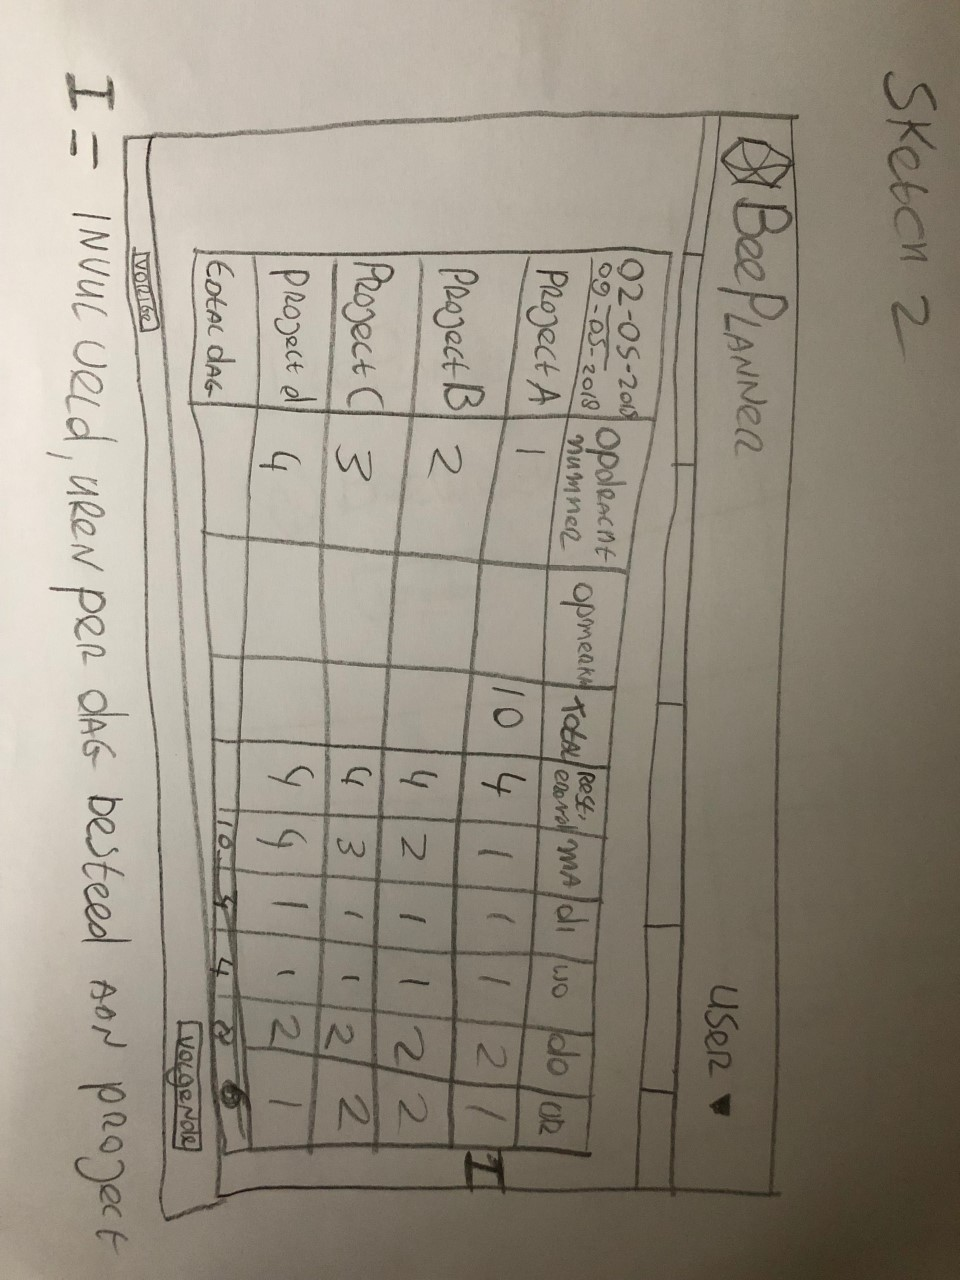 Sketch 2
BeePlanner
user ▼
02-05-2018 opdracht opmerkn Total Rest. MA di wo do VR
09-05-2018 nummer
Project A 1 10 4 1 1 1 2 1
Project B 2 4 2 1 1 2 2
Project C 3 4 3 1 1 2 2
Project d 4 4 4 1 1 2 1
totaal dag 10 4 4 8 6
Vorige Volgende
I
I = INVUL VELD, UREN per dAG besteed AAN project